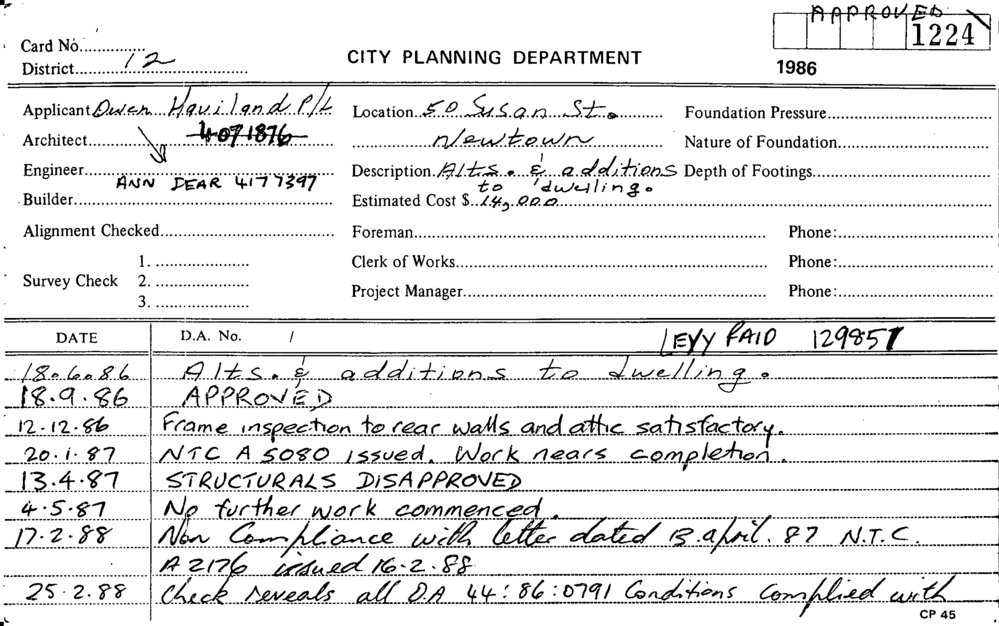 APPROVED
1224
Card No.
CITY PLANNING DEPARTMENT
District 12
1986
Applicant Owen Haviland P/L
Location 50 Susan St.
Foundation Pressure
Architect 4071876
Newtown
Nature of Foundation
Engineer
Description Alts. & additions
Depth of Footings
ANN DEAR 4177397
to dwelling.
Builder
Estimated Cost $ 14,000
Alignment Checked
Foreman
Phone:
Survey Check
1.
2.
3.
Clerk of Works
Phone:
Project Manager
Phone:
DATE
D.A. No. /
LEVY PAID 129857
18.6.86 Alts. & additions to dwelling.
18.9.86 APPROVED
12.12.86 Frame inspection to rear walls and attic satisfactory.
20.1.87 NTC A5080 issued. Work nears completion.
13.4.87 STRUCTURALS DISAPPROVED
4.5.87 No further work commenced.
17.2.88 Non Compliance with letter dated 13.april.87 N.T.C.
A2176 issued 16.2.88
25.2.88 Check reveals all DA 44:86:0791 Conditions Complied with
CP 45